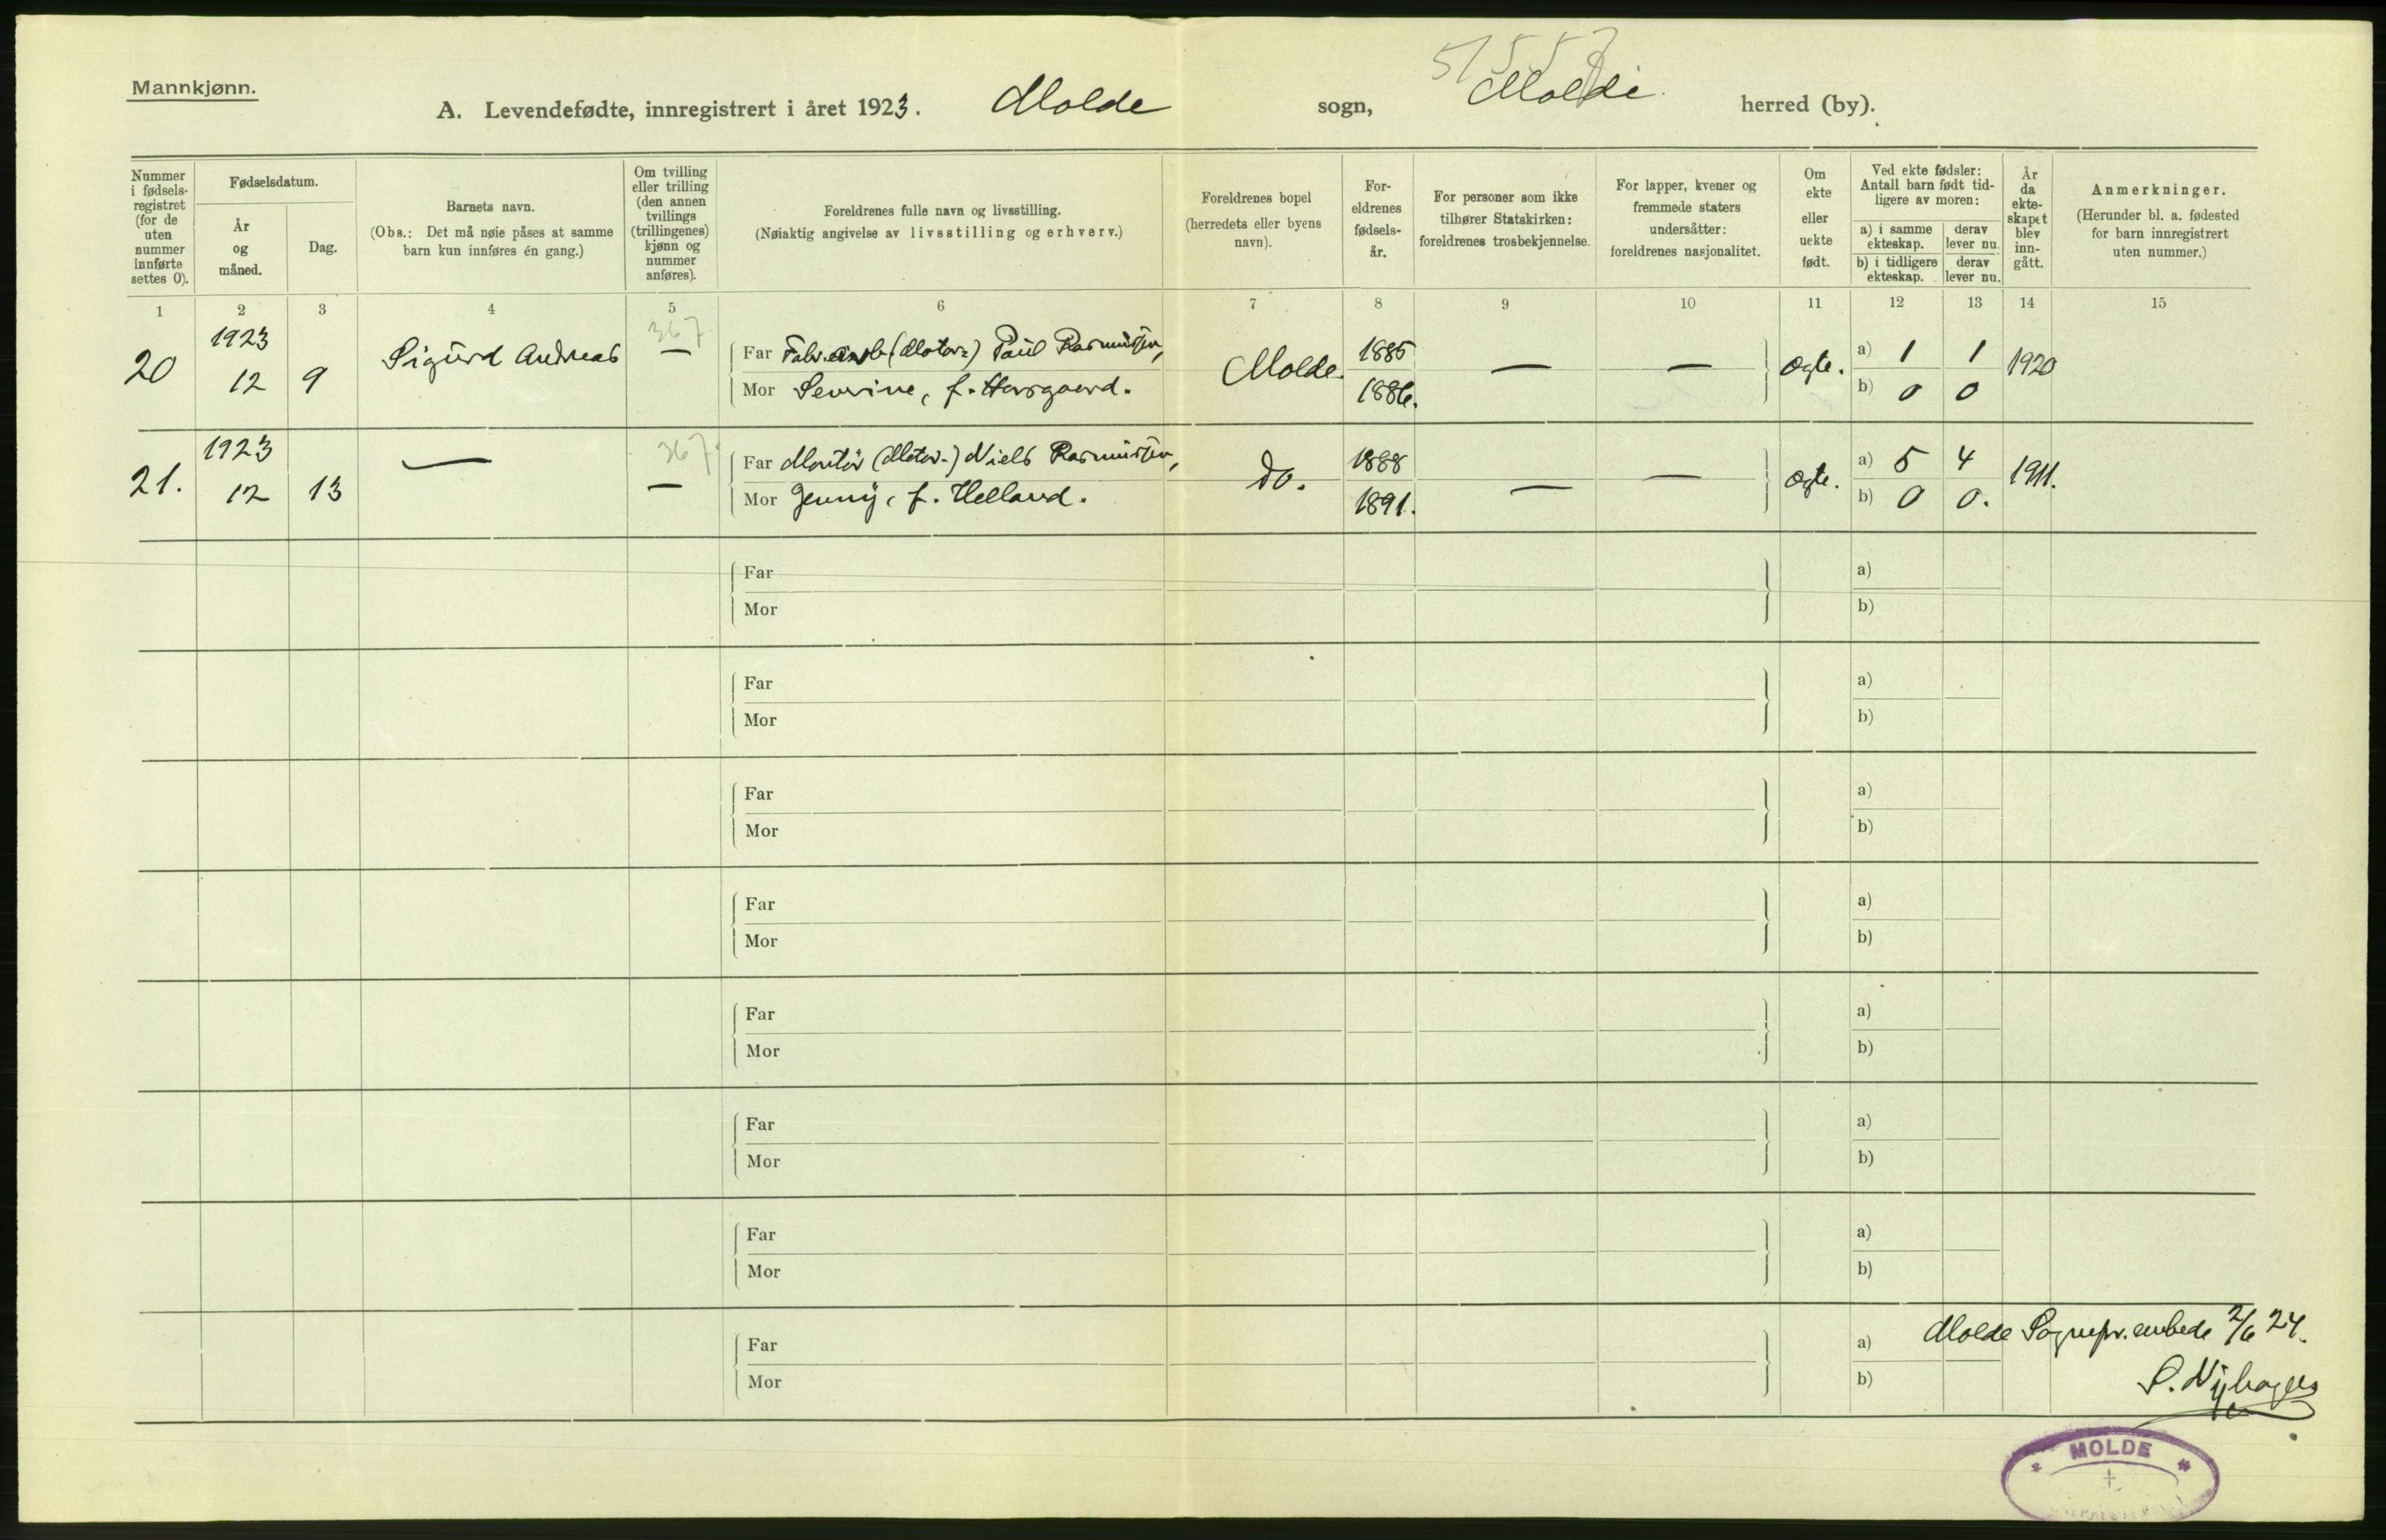 51553
Mannkjønn.
A. Levendefødte, innregistrert i året 1923. Molde sogn, Molde herred (by).
Nummer i fødsels- registret (for de uten nummer innførte settes 0).
Fødselsdatum.
År og måned.
Dag.
Barnets navn.
(Obs.: Det må nøie påses at samme barn kun innføres én gang.)
Om tvilling eller trilling (den annen tvillings (trillingenes) kjønn og nummer anføres).
Foreldrenes fulle navn og livsstilling.
(Nøiaktig angivelse av livsstilling og erhverv.)
Foreldrenes bopel (herredets eller byens navn).
For- eldrenes fødsels- år.
For personer som ikke tilhører Statskirken: foreldrenes trosbekjennelse.
For lapper, kvener og fremmede staters undersåtter: foreldrenes nasjonalitet.
Om ekte eller uekte født.
Ved ekte fødsler: Antall barn født tid- ligere av moren:
a) i samme ekteskap.
derav lever nu.
b) i tidligere ekteskap.
derav lever nu.
År da ekte- skapet blev inn- gått.
Anmerkninger.
(Herunder bl. a. fødested for barn innregistrert uten nummer.)
1 2 3 4 5 6 7 8 9 10 11 12 13 14 15
20 1923 12 9 Sigurd Andreas 367 —
Far Fabr.arb. (Motor-) Paul Rasmussen,
Mor Sevrine, f. Horsgaard.
Molde. 1885 1886. — — Ægte. a) 1 1 b) 0 0 1920
21. 1923 12 13 — 367 —
Far Montör (Motor-) Niels Rasmussen,
Mor Jenny, f. Helland.
do. 1888 1891. — — Ægte. a) 5 4 b) 0 0. 1911.
Far a)
Mor b)
Far a)
Mor b)
Far a)
Mor b)
Far a)
Mor b)
Far a)
Mor b)
Far a)
Mor b)
Far a)
Mor b)
Far a)
Mor b)
Molde Sognepr.embede 2/6 24.
MOLDE